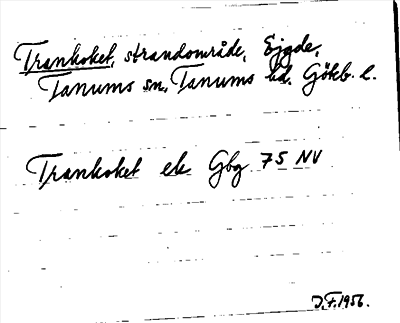 Trankoket, strandområde, Ejgde,
Tanums sn, Tanums hd. Götb. l.
Trankoket ek Gbg 75 NV
D.F. 1956.